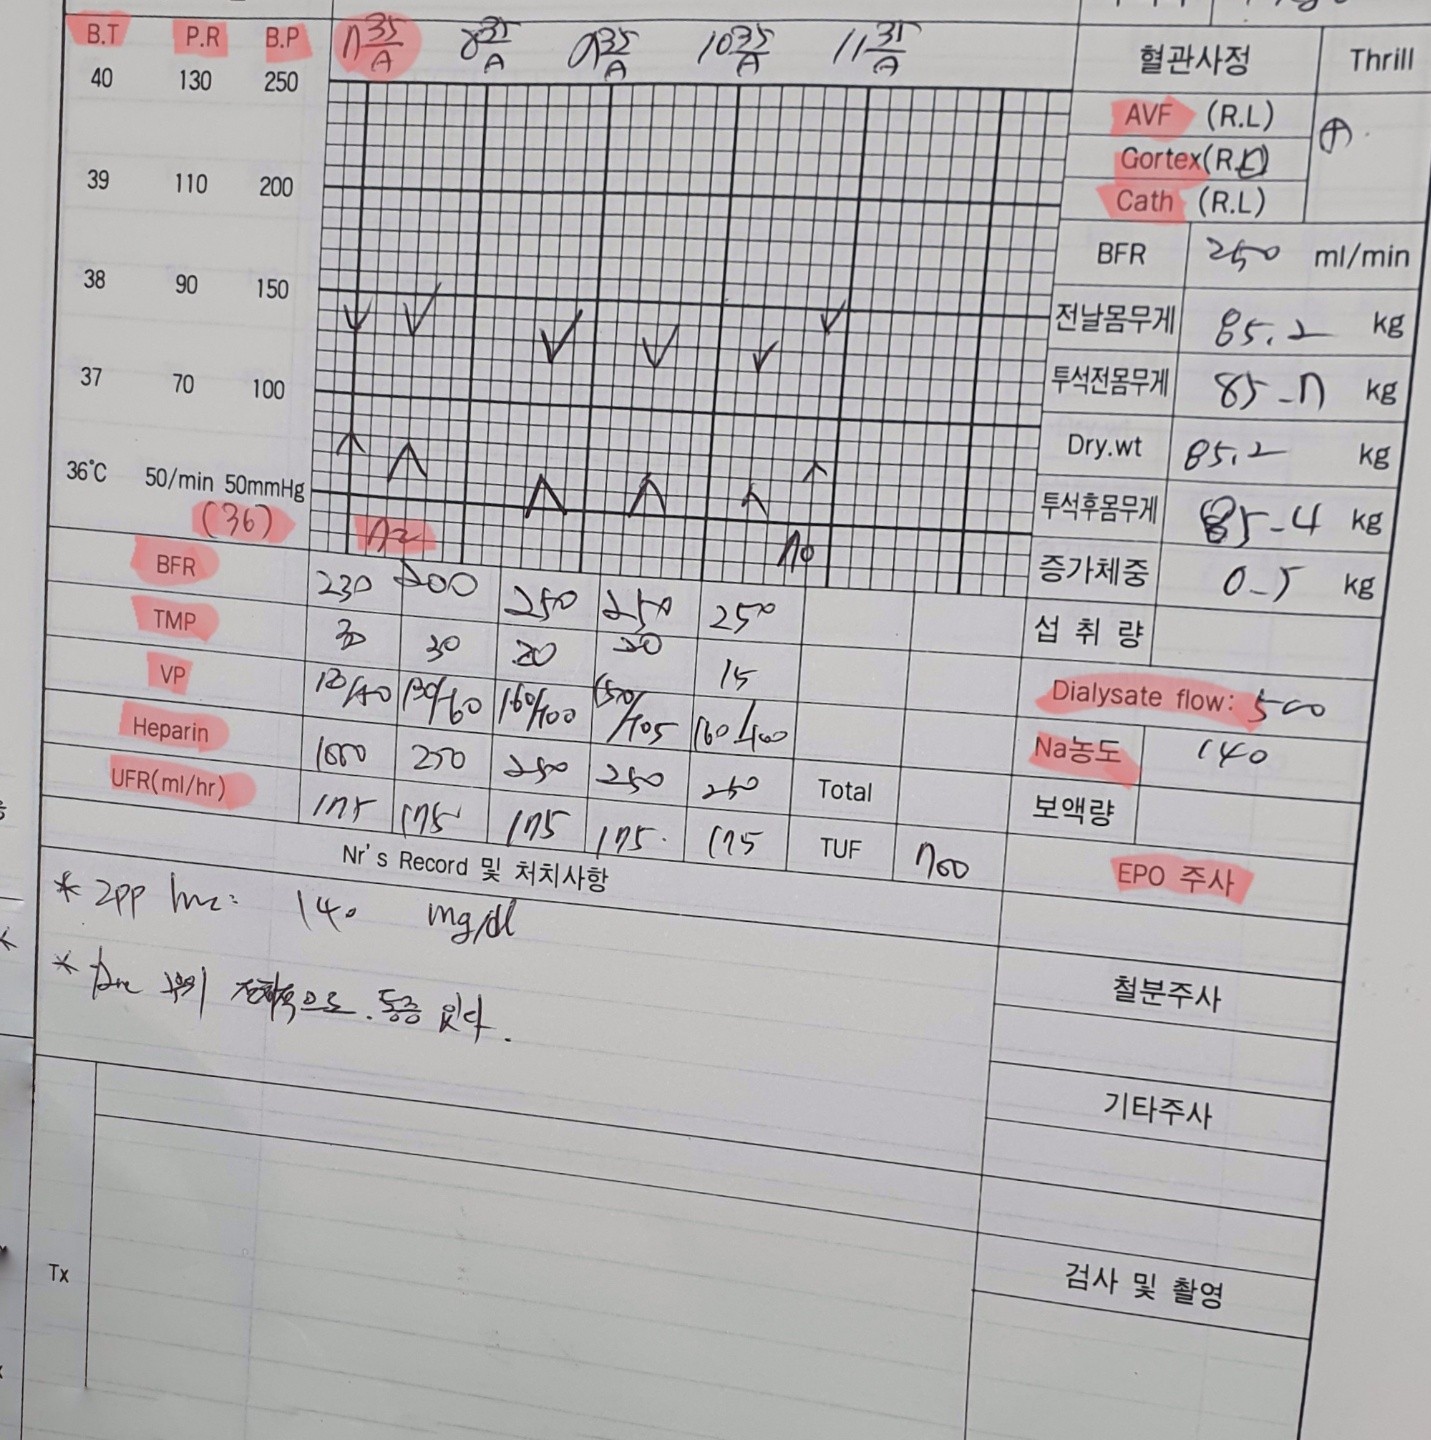 B.T P.R B.P 7 35/A 8 35/A 9 35/A 10 35/A 11 35/A
40 130 250
39 110 200
38 90 150
37 70 100
36°C 50/min 50mmHg
(36) 72 70
BFR 230 200 250 250 250
TMP 30 30 20 20 15
VP 130/60 160/100 150/105 160/100
Heparin 1000 250 250 250 250 Total
UFR(ml/hr) 175 175 175 175 175 TUF 700
Nr's Record 및 처치사항
* 2pp 140 mg/dl
* 부위 전체적으로. 통증 있다.
Tx
혈관사정 Thrill
AVF (R.L) ⊕
Gortex(R.L)
Cath (R.L)
BFR 250 ml/min
전날몸무게 85.2 kg
투석전몸무게 85-7 kg
Dry.wt 85.2 kg
투석후몸무게 85-4 kg
증가체중 0-5 kg
섭취량
Dialysate flow: 500
Na농도 140
보액량
EPO 주사
철분주사
기타주사
검사 및 촬영